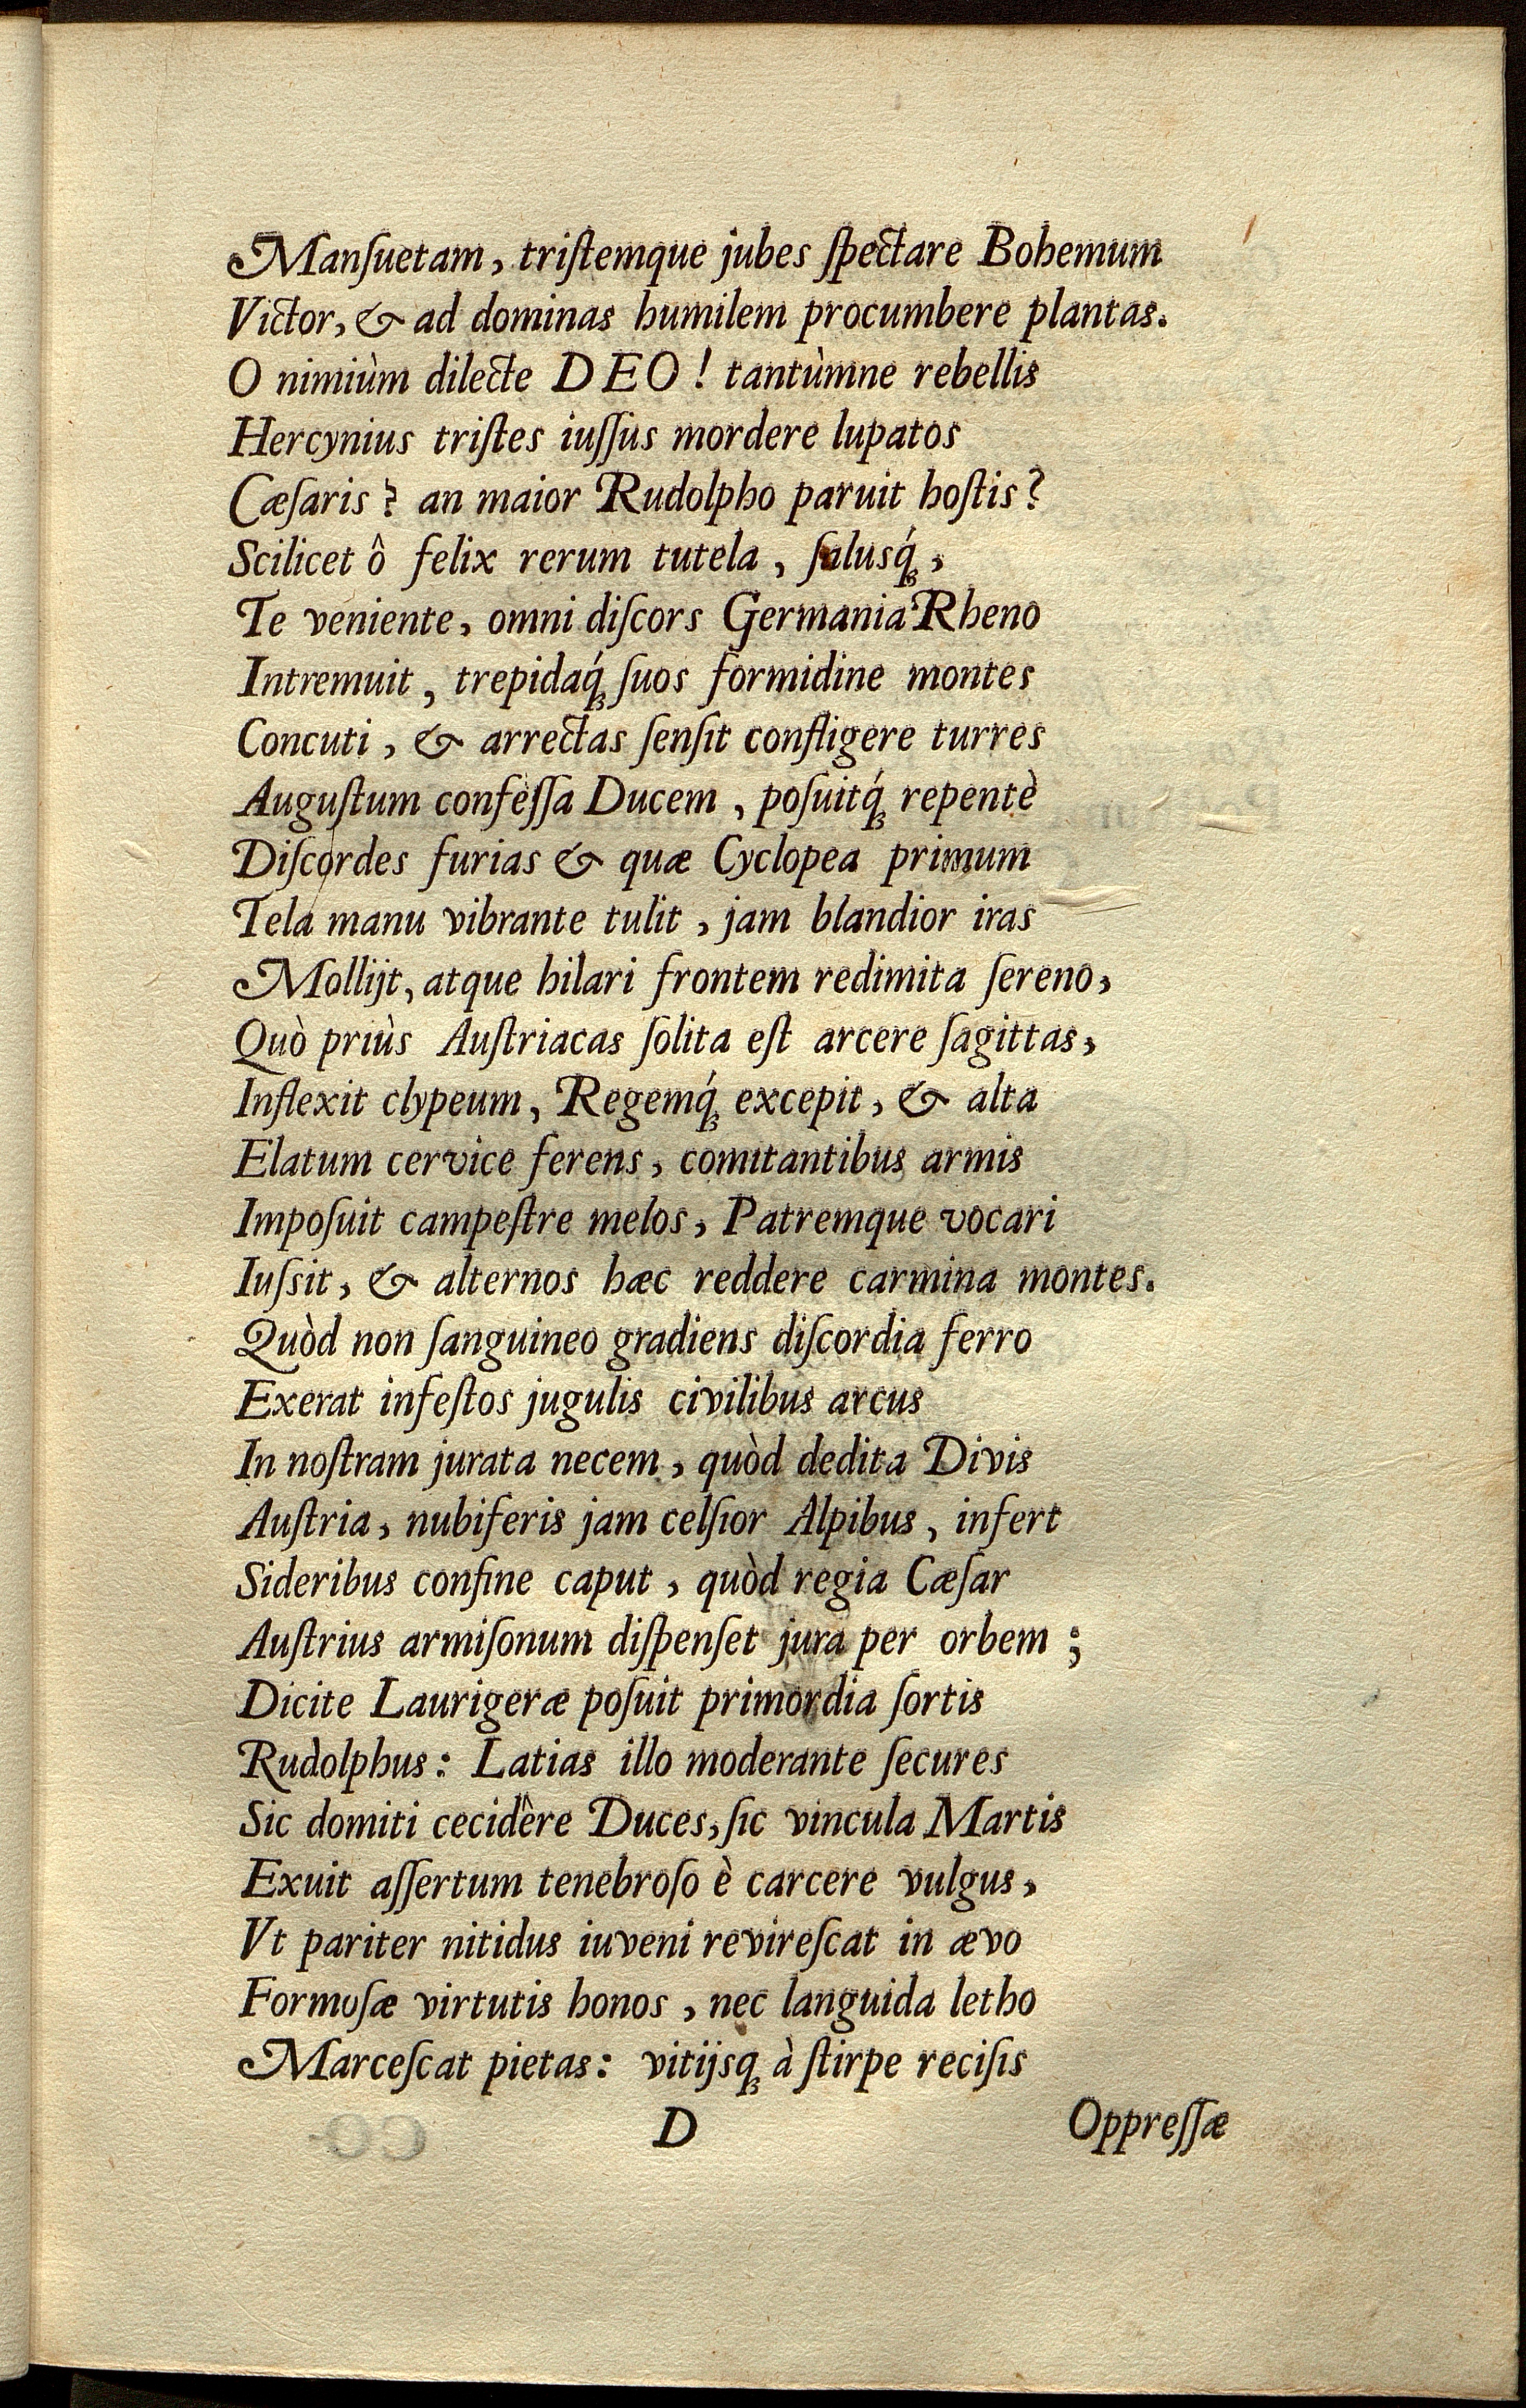 Manſuetam, triſtemque jubes ſpectare Bohemum
Victor, & ad dominas humilem procumbere plantas.
O nimiùm dilecte DEO! tantùmne rebellis
Hercynius triſtes iuſſus mordere lupatos
Cæſaris? an maior Rudolpho paruit hoſtis?
Scilicet ô felix rerum tutela, ſalusq́;,
Te veniente, omni diſcors Germania Rheno
Intremuit, trepidaq́; ſuos formidine montes
Concuti, & arrectas ſenſit confligere turres
Auguſtum confeſſa Ducem, poſuitq́; repentè
Diſcordes furias & quæ Cyclopea primum
Tela manu vibrante tulit, jam blandior iras
Mollijt, atque hilari frontem redimita ſereno,
Quò priùs Auſtriacas ſolita eſt arcere ſagittas,
Inflexit clypeum, Regemq́; excepit, & alta
Elatum cervice ferens, comitantibus armis
Impoſuit campeſtre melos, Patremque vocari
Iuſsit, & alternos hæc reddere carmina montes.
Quòd non ſanguineo gradiens diſcordia ferro
Exerat infeſtos jugulis civilibus arcus
In noſtram jurata necem, quòd dedita Divis
Auſtria, nubiferis jam celſior Alpibus, infert
Sideribus confine caput, quòd regia Cæſar
Auſtrius armiſonum diſpenſet jura per orbem;
Dicite Laurigeræ poſuit primordia ſortis
Rudolphus: Latias illo moderante ſecures
Sic domiti cecidêre Duces, ſic vincula Martis
Exuit aſſertum tenebroſo è carcere vulgus,
Vt pariter nitidus iuveni revireſcat in ævo
Formoſæ virtutis honos, nec languida letho
Marceſcat pietas: vitijsq; à ſtirpe reciſis
D
Oppreſſæ